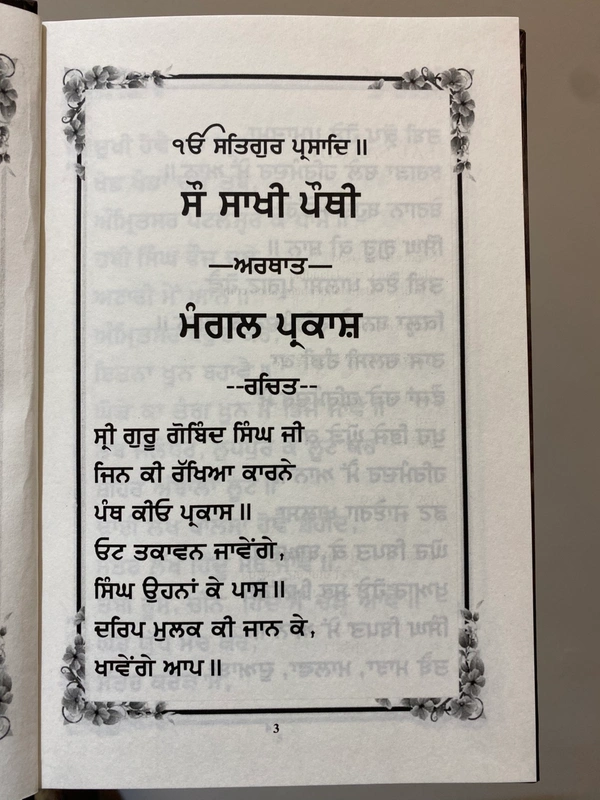 ੴ ਸਤਿਗੁਰ ਪ੍ਰਸਾਦਿ॥
ਸੌ ਸਾਖੀ ਪੌਥੀ
—ਅਰਥਾਤ—
ਮੰਗਲ ਪ੍ਰਕਾਸ਼
--ਰਚਿਤ--
ਸ੍ਰੀ ਗੁਰੂ ਗੋਬਿੰਦ ਸਿੰਘ ਜੀ
ਜਿਨ ਕੀ ਰੱਖਿਆ ਕਾਰਨੇ
ਪੰਥ ਕੀਓ ਪ੍ਰਕਾਸ॥
ਓਟ ਤਕਾਵਨ ਜਾਵੇਂਗੇ,
ਸਿੰਘ ਉਹਨਾਂ ਕੇ ਪਾਸ॥
ਦਰਿਪ ਮੁਲਕ ਕੀ ਜਾਨ ਕੇ,
ਖਾਵੇਂਗੇ ਆਪ॥
3